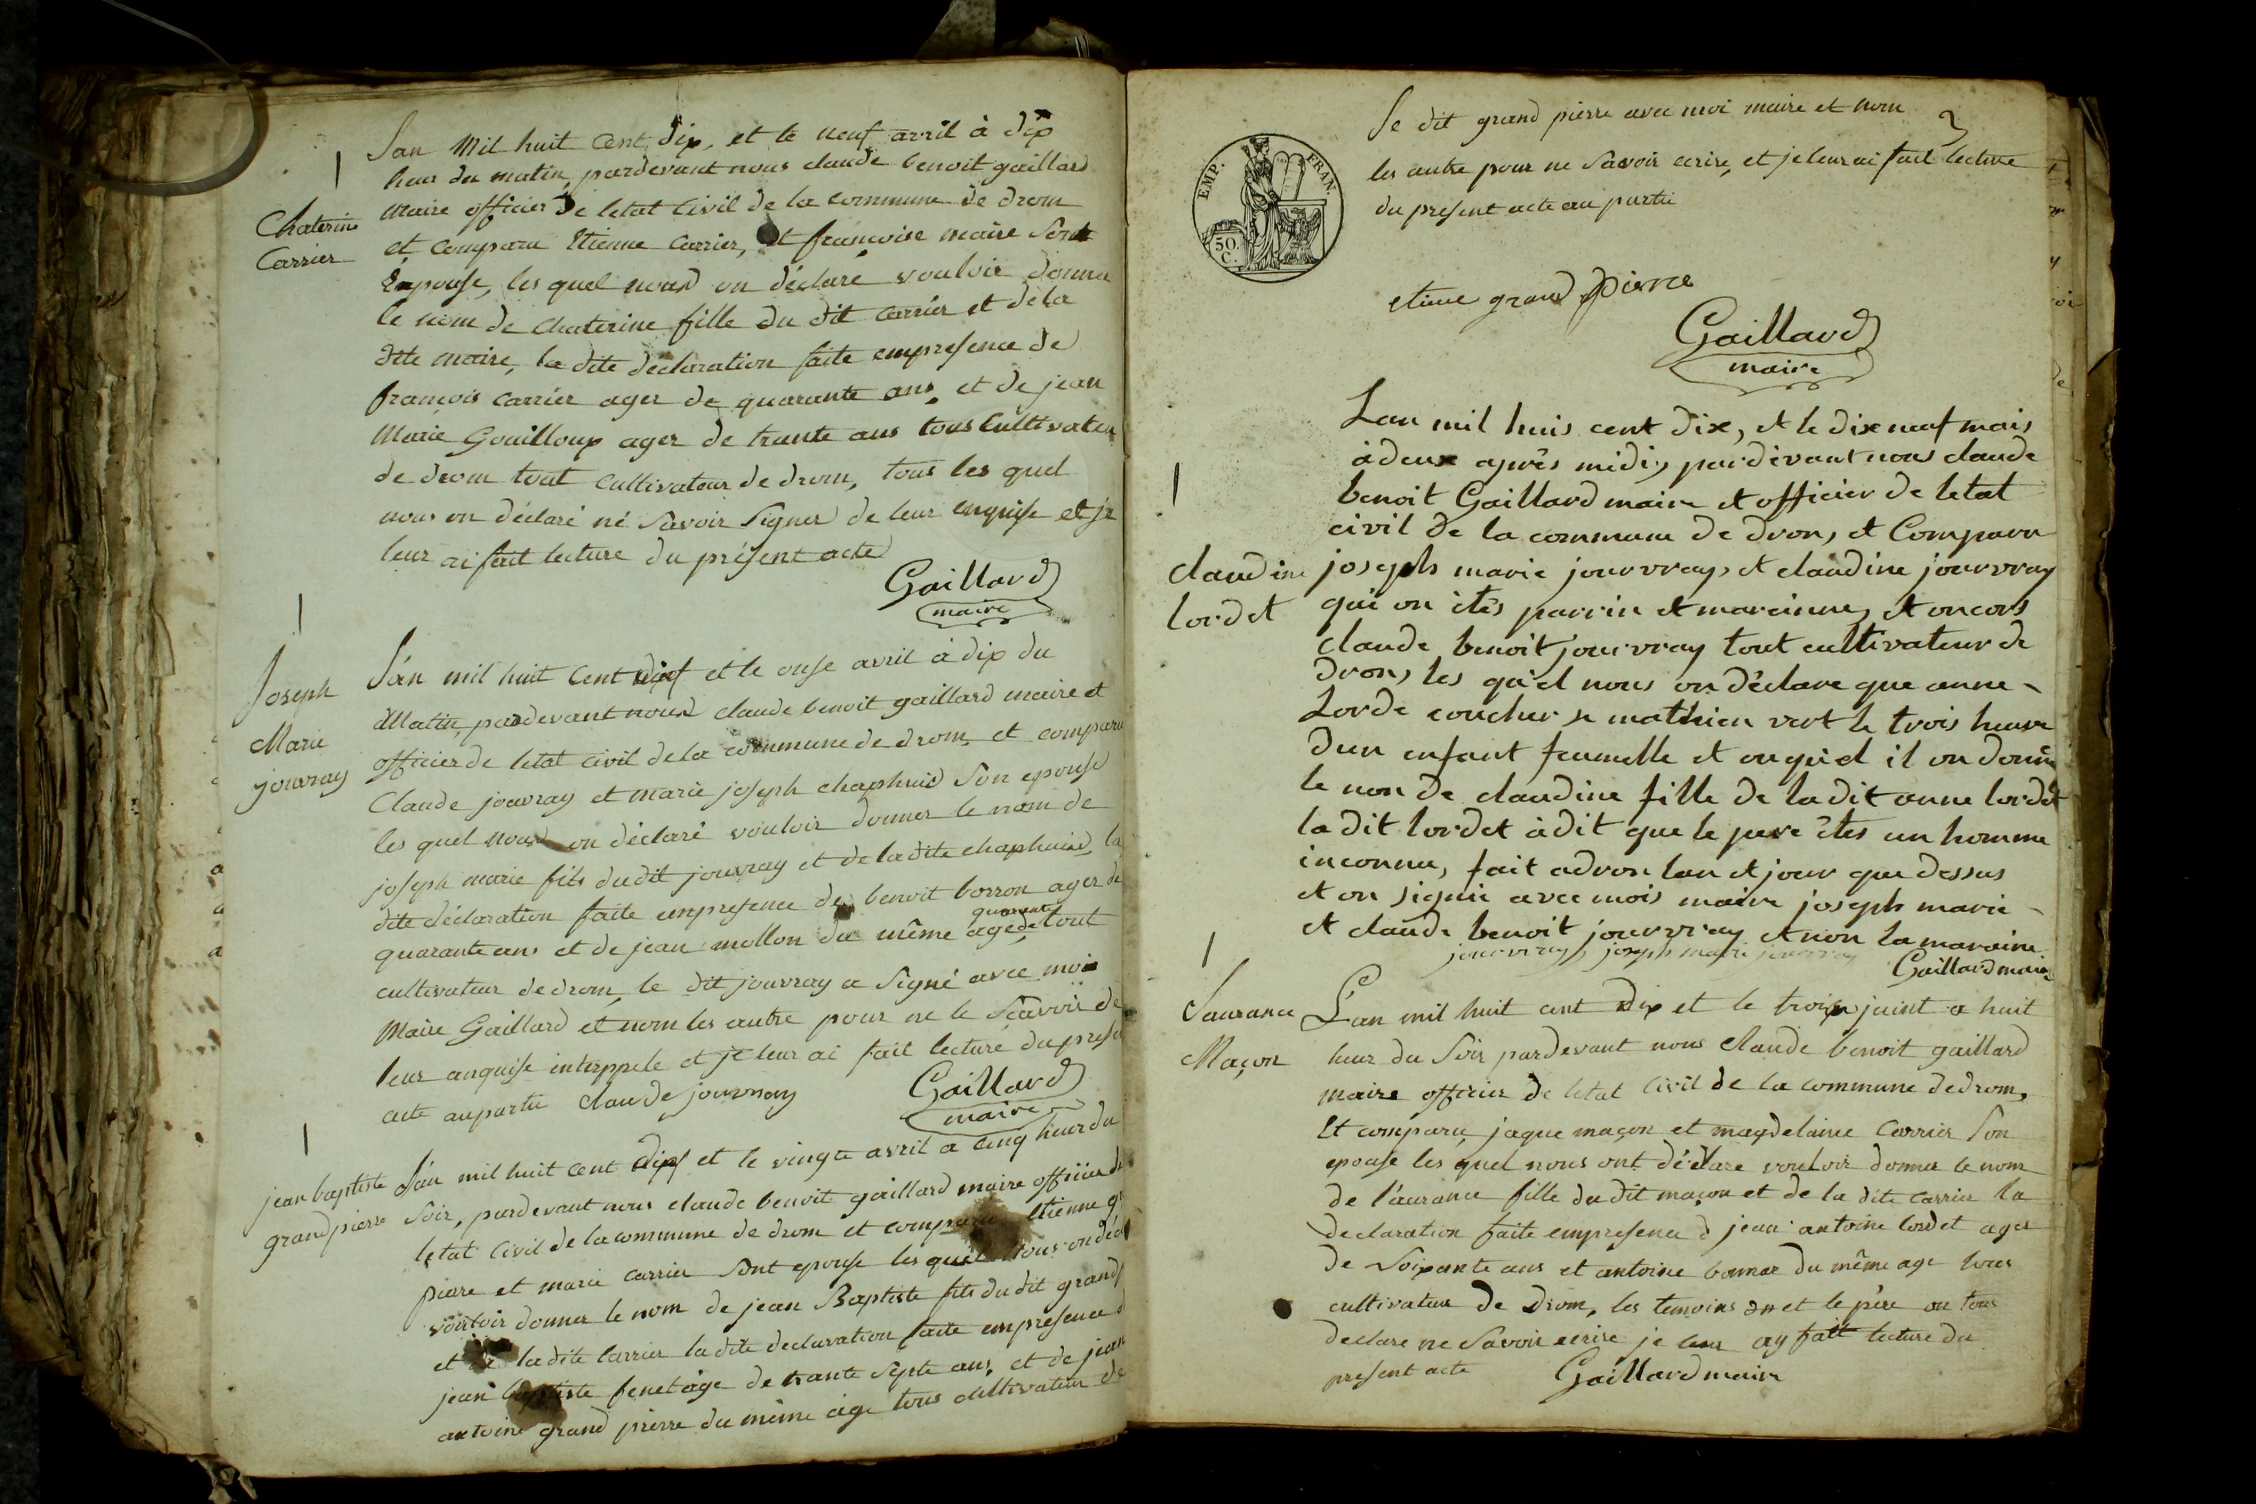 Chaterine
Carrier
Lan mil huit cent dix, et le neuf avril à dix
heur du matin, pardevant nous claude benoit gaillard
maire officier de letat Civil de la commune de drom
et comparu Etienne Carrier, et françoise maire Sont
Epouse, les quel nous on déclaré vouloir donner
le nom de Chaterine fille du dit carrier et de la
dite maire, la dite déclaration faite empresence de
françois carrier ager de quarante ans, et de jean
Marie Gouilloux ager de trante ans tous Cultivateur
de drom tout Cultivateur de drom, tous les quel
nous on déclaré né Savoir Signer de leur enquise et je
leur ai fait lecture du présent acte
Gaillard
maire
Joseph
Marie
jouvray
Lan mil huit Cent dix et le onse avril à dix du
Matin, pardevant nous claude benoit gaillard maire et
officier de letat Civil de la commune de drom, et comparu
Claude jouvray et marie joseph chaphuis Son epouse
les quel nous on déclaré vouloir donner le nom de
joseph marie fils dudit jouvray et de ladite chaphuis, la
dite déclaration faite empresence de benoit borron ager de
quarante ans et de jean mollon du même age de quarante tout
cultivateur de drom, le dit jouvray a Signé avec moi
Maire Gaillard et nom les autre pour ne le Sçavoir de
leur anquise interppele et je leur ai fait lecture du present
acte aupartie claude jouvray
Gaillard
maire
jean baptiste
grandpierre
Lan mil huit cent dix et le vingte avril a cinq heur du
Soir, pardevant nous claude benoit gaillard maire officier de
letat Civil de la commune de drom et comparu Etienne gr
pierre et marie carrier Sont epouse les quel nous on décl
vouloir donner le nom de jean Baptiste fils du dit grand
et de la dite Carrier la dite declaration faite empresence d
jean baptiste fenet age de trante Septe ans, et de jean
antoine grand pierre du même age tous cultivateur de
EMP. FRAN.
50.
C.
le dit grand pierre avec moi maire et nom
les autre pour ne Savoir ecrire, et je leur ai fait lecture
du present acte au partie
etiene grand pierre
Gaillard
maire
claudine
lordet
Lan mil huis cent dix, et le dix neuf mais
à deux après midi, pardivant nous claude
benoit Gaillard maire et officier de letat
civil de la commune de dron, et Comparu
joseph marie jourvray, et claudine jourvray
qui on étés parrin et marainne, et oncors
claude benoit jourvray tout cultivateur de
dron, les qu'el nous on déclare que anne
Lorde coucher se mathien vert le trois heure
dun enfant feumelle et ouqu'el il on donné
le non de claudine fille de la dit anne lordet
la dit lordet à dit que le pere étes un homme
inconnu, fait adron lan et jour que dessus
et on signié avec mois maire joseph marie
et claude benoit jourvray et non la maraine
jourvray, joseph marie jourvray
Gaillard maire
Laurance
Maçon
Lan mil huit cent dix et le trois juint a huit
heur du Soir pardevant nous Claude benoit gaillard
maire officier de letat Civil de la commune de drom,
Et comparu, jaque maçon et magdelaine Carrier Son
epouse les quel nous ont déclare vouloir donner le nom
de l'aurance fille du dit maçon et de la dite carrier la
declaration faite empresence d jean antoine lordet ager
de Soixante ans et antoine bonnar du même age tous
cultivateur de Drom, les temoins et le père on tous
declare ne Savoir ecrire je leur ay fait lecture du
present acte
Gaillard maire